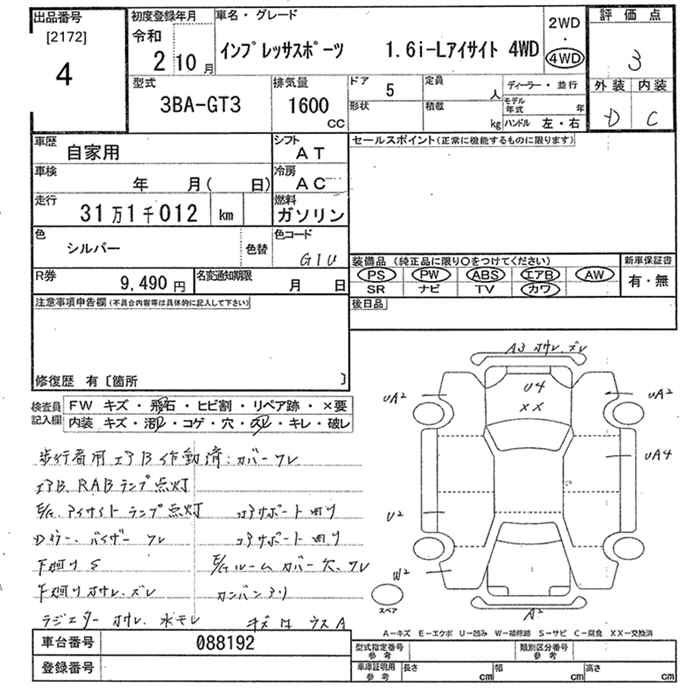 出品番号 初度登録年月 車名・グレード 2WD 評価点
[2172] 令和 ・
4 2 10月 インプレッサスポーツ 1.6i-Lアイサイト 4WD 4WD 3
型式 排気量 ドア 5 定員 人 ディーラー・並行 外装 内装
3BA-GT3 1600 CC 形状 積載 kg モデル年式 年 D C
ハンドル 左・右
車歴 自家用 シフト AT セールスポイント(正常に機能するものに限ります)
車検 年 月( 日) 冷房 AC
走行 31万1千012 km 燃料 ガソリン
色 シルバー 色替 色コード G1U
装備品 (純正品に限り○をつけてください) 新車保証書
R券 9,490円 名変通知期限 月 日 PS PW ABS エアB AW 有・無
SR ナビ TV カワ
注意事項申告欄(不具合内容等は具体的に記入して下さい) 後日品
修復歴 有〔箇所 〕
検査員記入欄 FW キズ・飛石・ヒビ割・リペア跡・×要
内装 キズ・汚レ・コゲ・穴・スレ・キレ・破レ
A3 オサレ.ズレ
U4
XX
UA2
UA2
UA4
U2
W2
A2
スペア
歩行者用エアB作動済:カバーワレ
エアB、RABランプ点灯
E/G、アイサイトランプ点灯 コアサポート曲リ
Dラー.バイザー ワレ コアサポート曲リ
下廻リ S E/Gルームカバー欠、ワレ
下廻リオサレ.ズレ カンバンアリ
ラジエターオサレ.水モレ キズ凹 ウスA
A-キズ E-エクボ U-凹み W-補修跡 S-サビ C-腐食 XX-交換済
車台番号 088192 型式指定番号 参考 類別区分番号 参考
登録番号 車庫証明用 参考 長さ cm 幅 cm 高さ cm